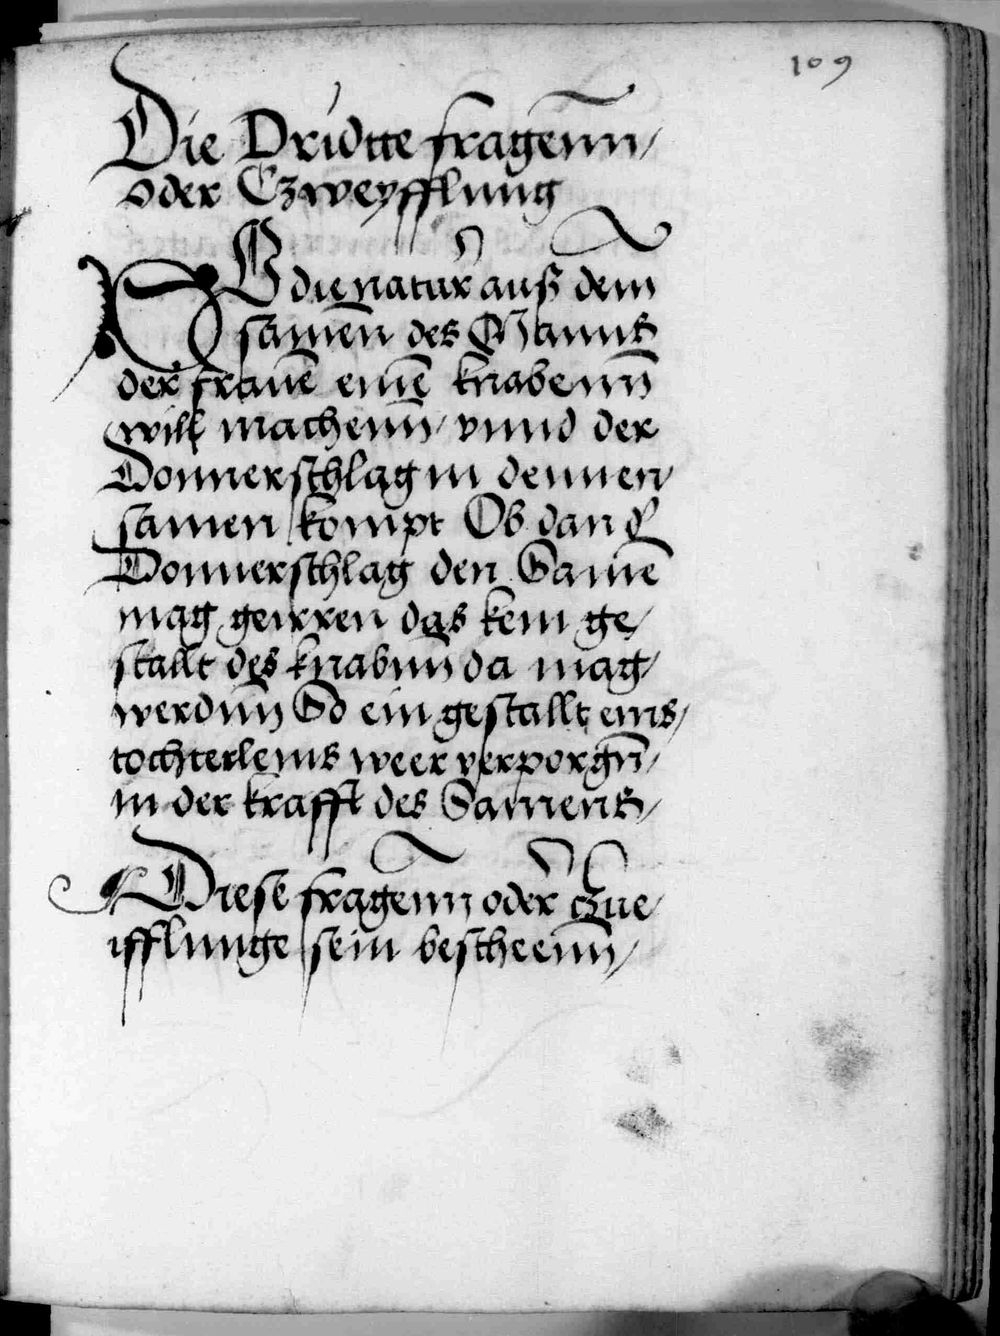 109
Die Dridtte fragenn/
oder Czweyfflung
Ob die natur auß dem
samen des Manns
der frauē einē knabenn
will machenn/ vnnd der
Donnerschlag in dennen/
samen kompt Ob dan d
Donnerschlag den Samē
mag geirren das kein ge/
stallt des knabnn da mag/
werdnn So ein gestallt eins/
tochterleins weer verporgn̄/
in der krafft des Samens/
Diese fragenn oder Czue/
ifflunge sein bescheenn/